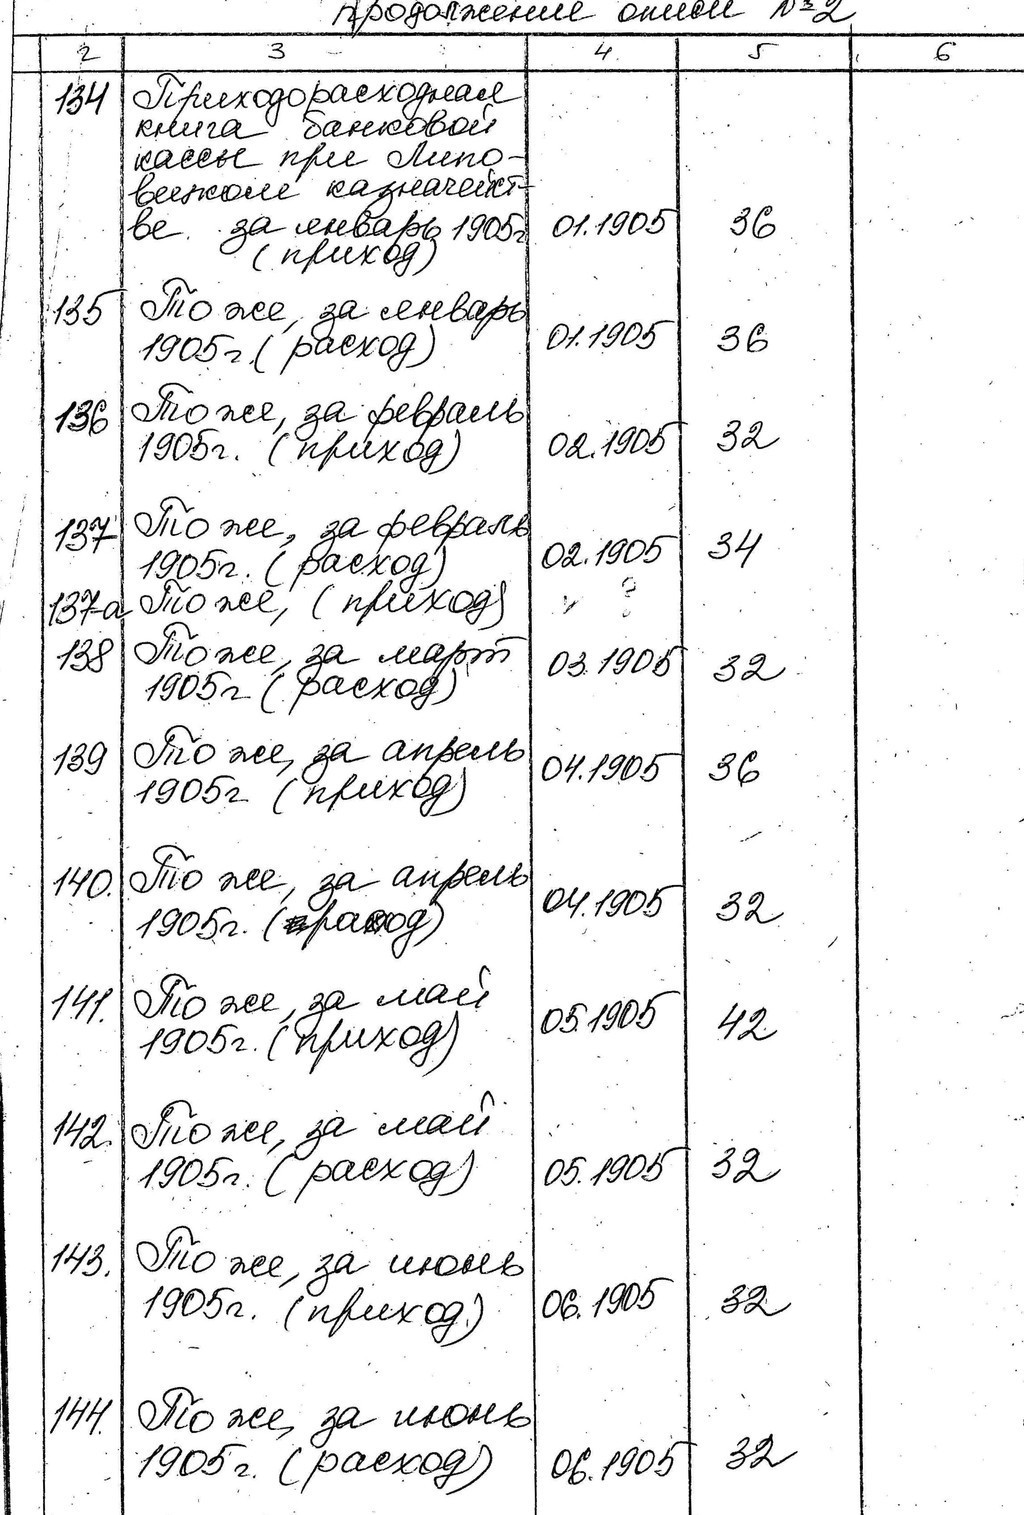 продолжение описи №2
2 3 4. 5 6
134 Приходорасходная
книга банковой
кассы при Липо-
вецком казначейст-
ве за январь 1905г 01.1905 36
(приход)
135 То же, за январь
1905г. (расход) 01.1905 36
136 То же, за февраль
1905г. (приход) 02.1905 32
137 То же, за февраль
1905г. (расход) 02.1905 34
137-а То же, (приход) ?
138 То же, за март 03.1905 32
1905г. (расход)
139 То же, за апрель
1905г. (приход) 04.1905 36
140. То же, за апрель
1905г. (расход) 04.1905 32
141. То же, за май
1905г. (приход) 05.1905 42
142. То же, за май
1905г. (расход) 05.1905 32
143. То же, за июнь
1905г. (приход) 06.1905 32
144. То же, за июнь
1905г. (расход) 06.1905 32